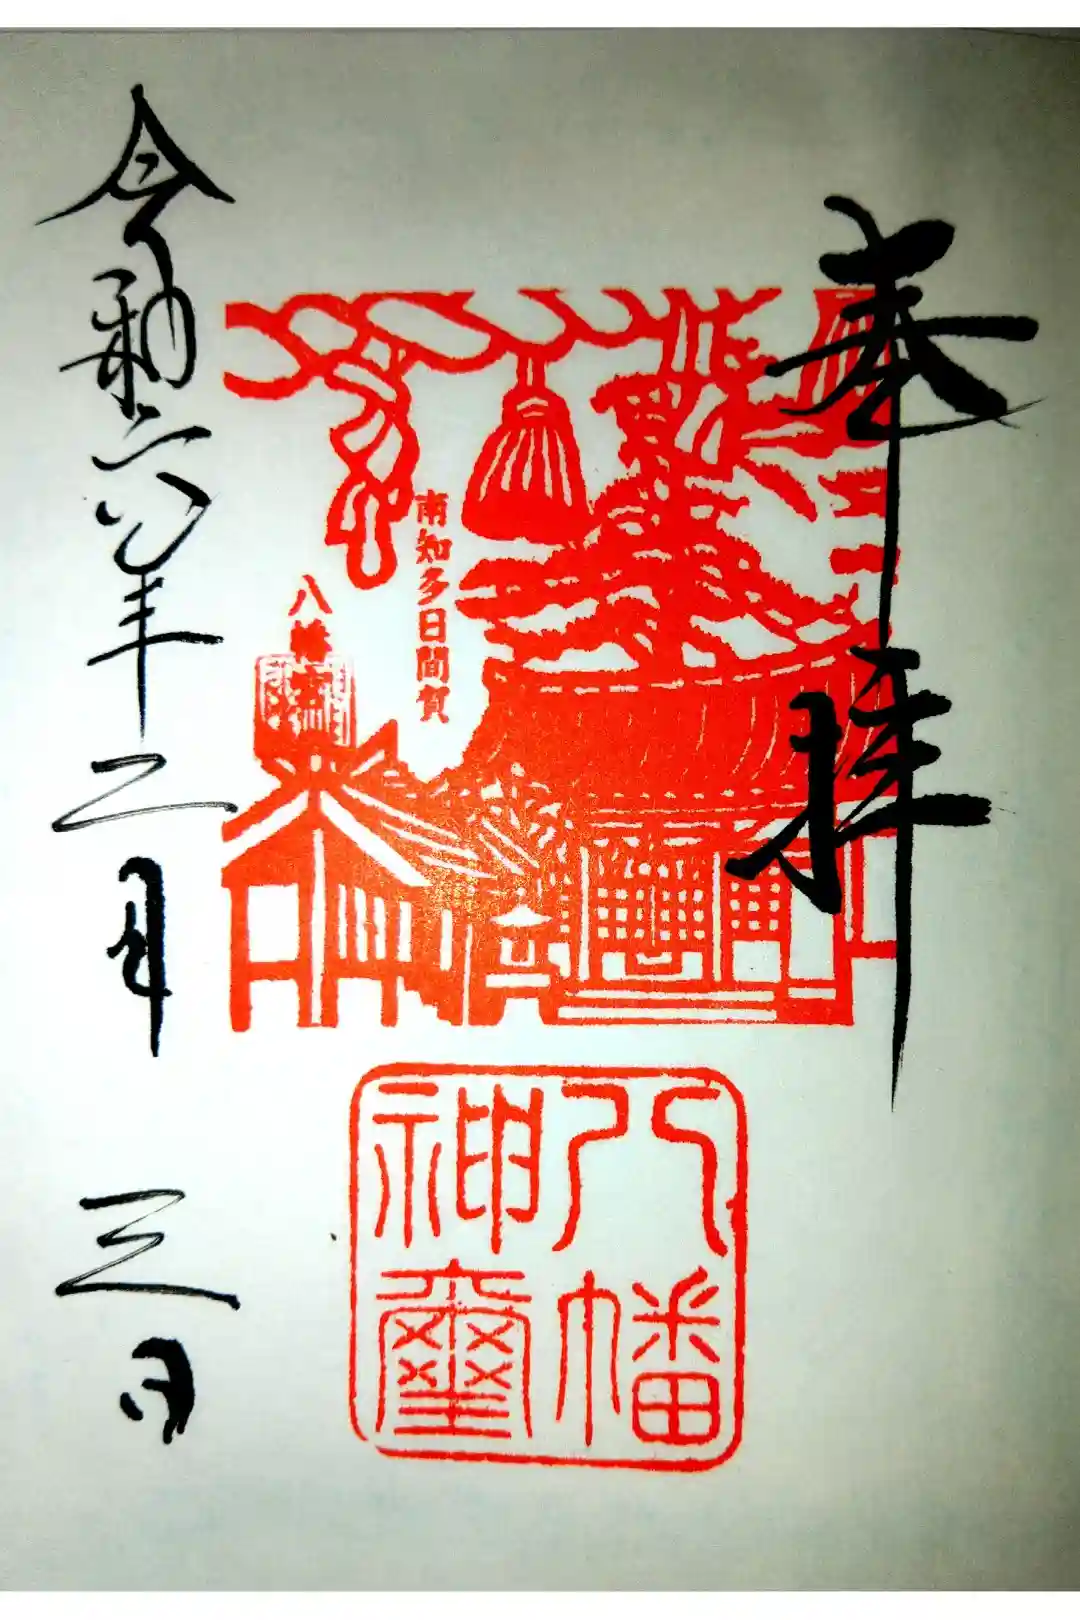 奉拝
南知多日間賀
八幡
八幡
神璽
令和六年二月三日